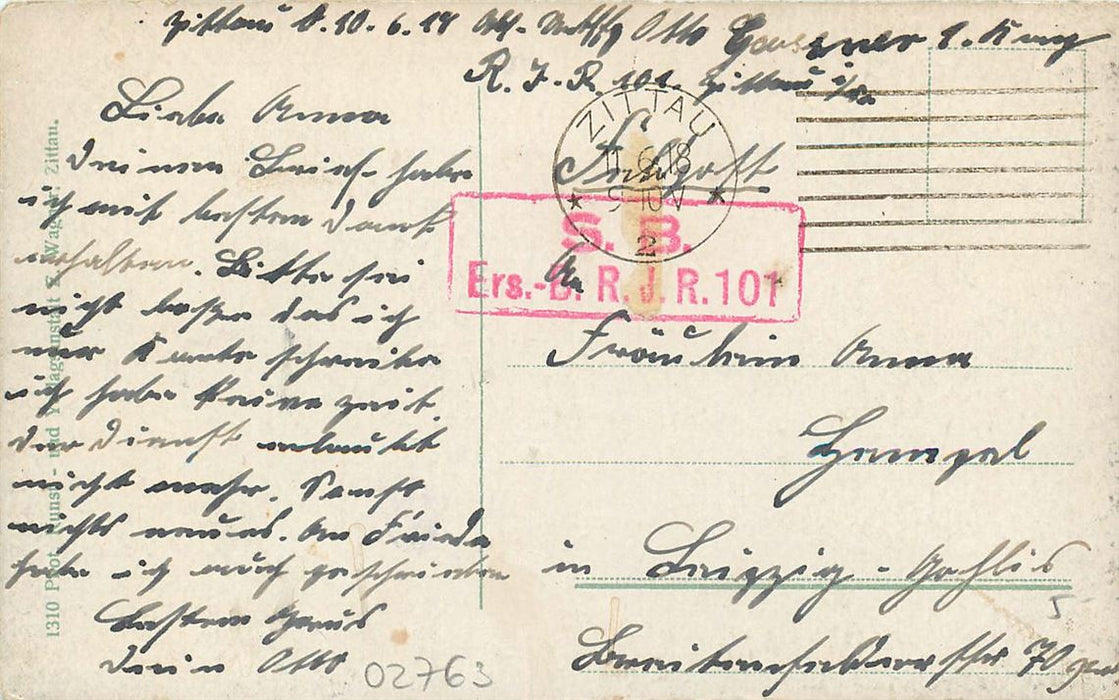 Zittau d. 10.6.18 Abs. Otto Gaussner 1. Komp
R. J. R. 101. Zittau i/Sa
Liebe Anna
Deinen Brief habe
ich mit besten Dank
erhalten. Bitte sei
nicht böse das ich
nur Karte schreibe
ich habe keine zeit.
Der Dienst erlaubt
nicht mehr. Sonst
nichts neues. An Frieda
habe ich auch geschrieben
Besten Gruß
Dein Otto
02763
Feldpost
ZITTAU
11.6.18
9-10 V
2
S. B.
Ers.-B. R. J. R. 101
An
Fräulein Anna
Hempel
in Leipzig - Gohlis
Breitenfelderstr 70
1310 Phot. Kunst- und Verlagsanstalt Wagner, Zittau.